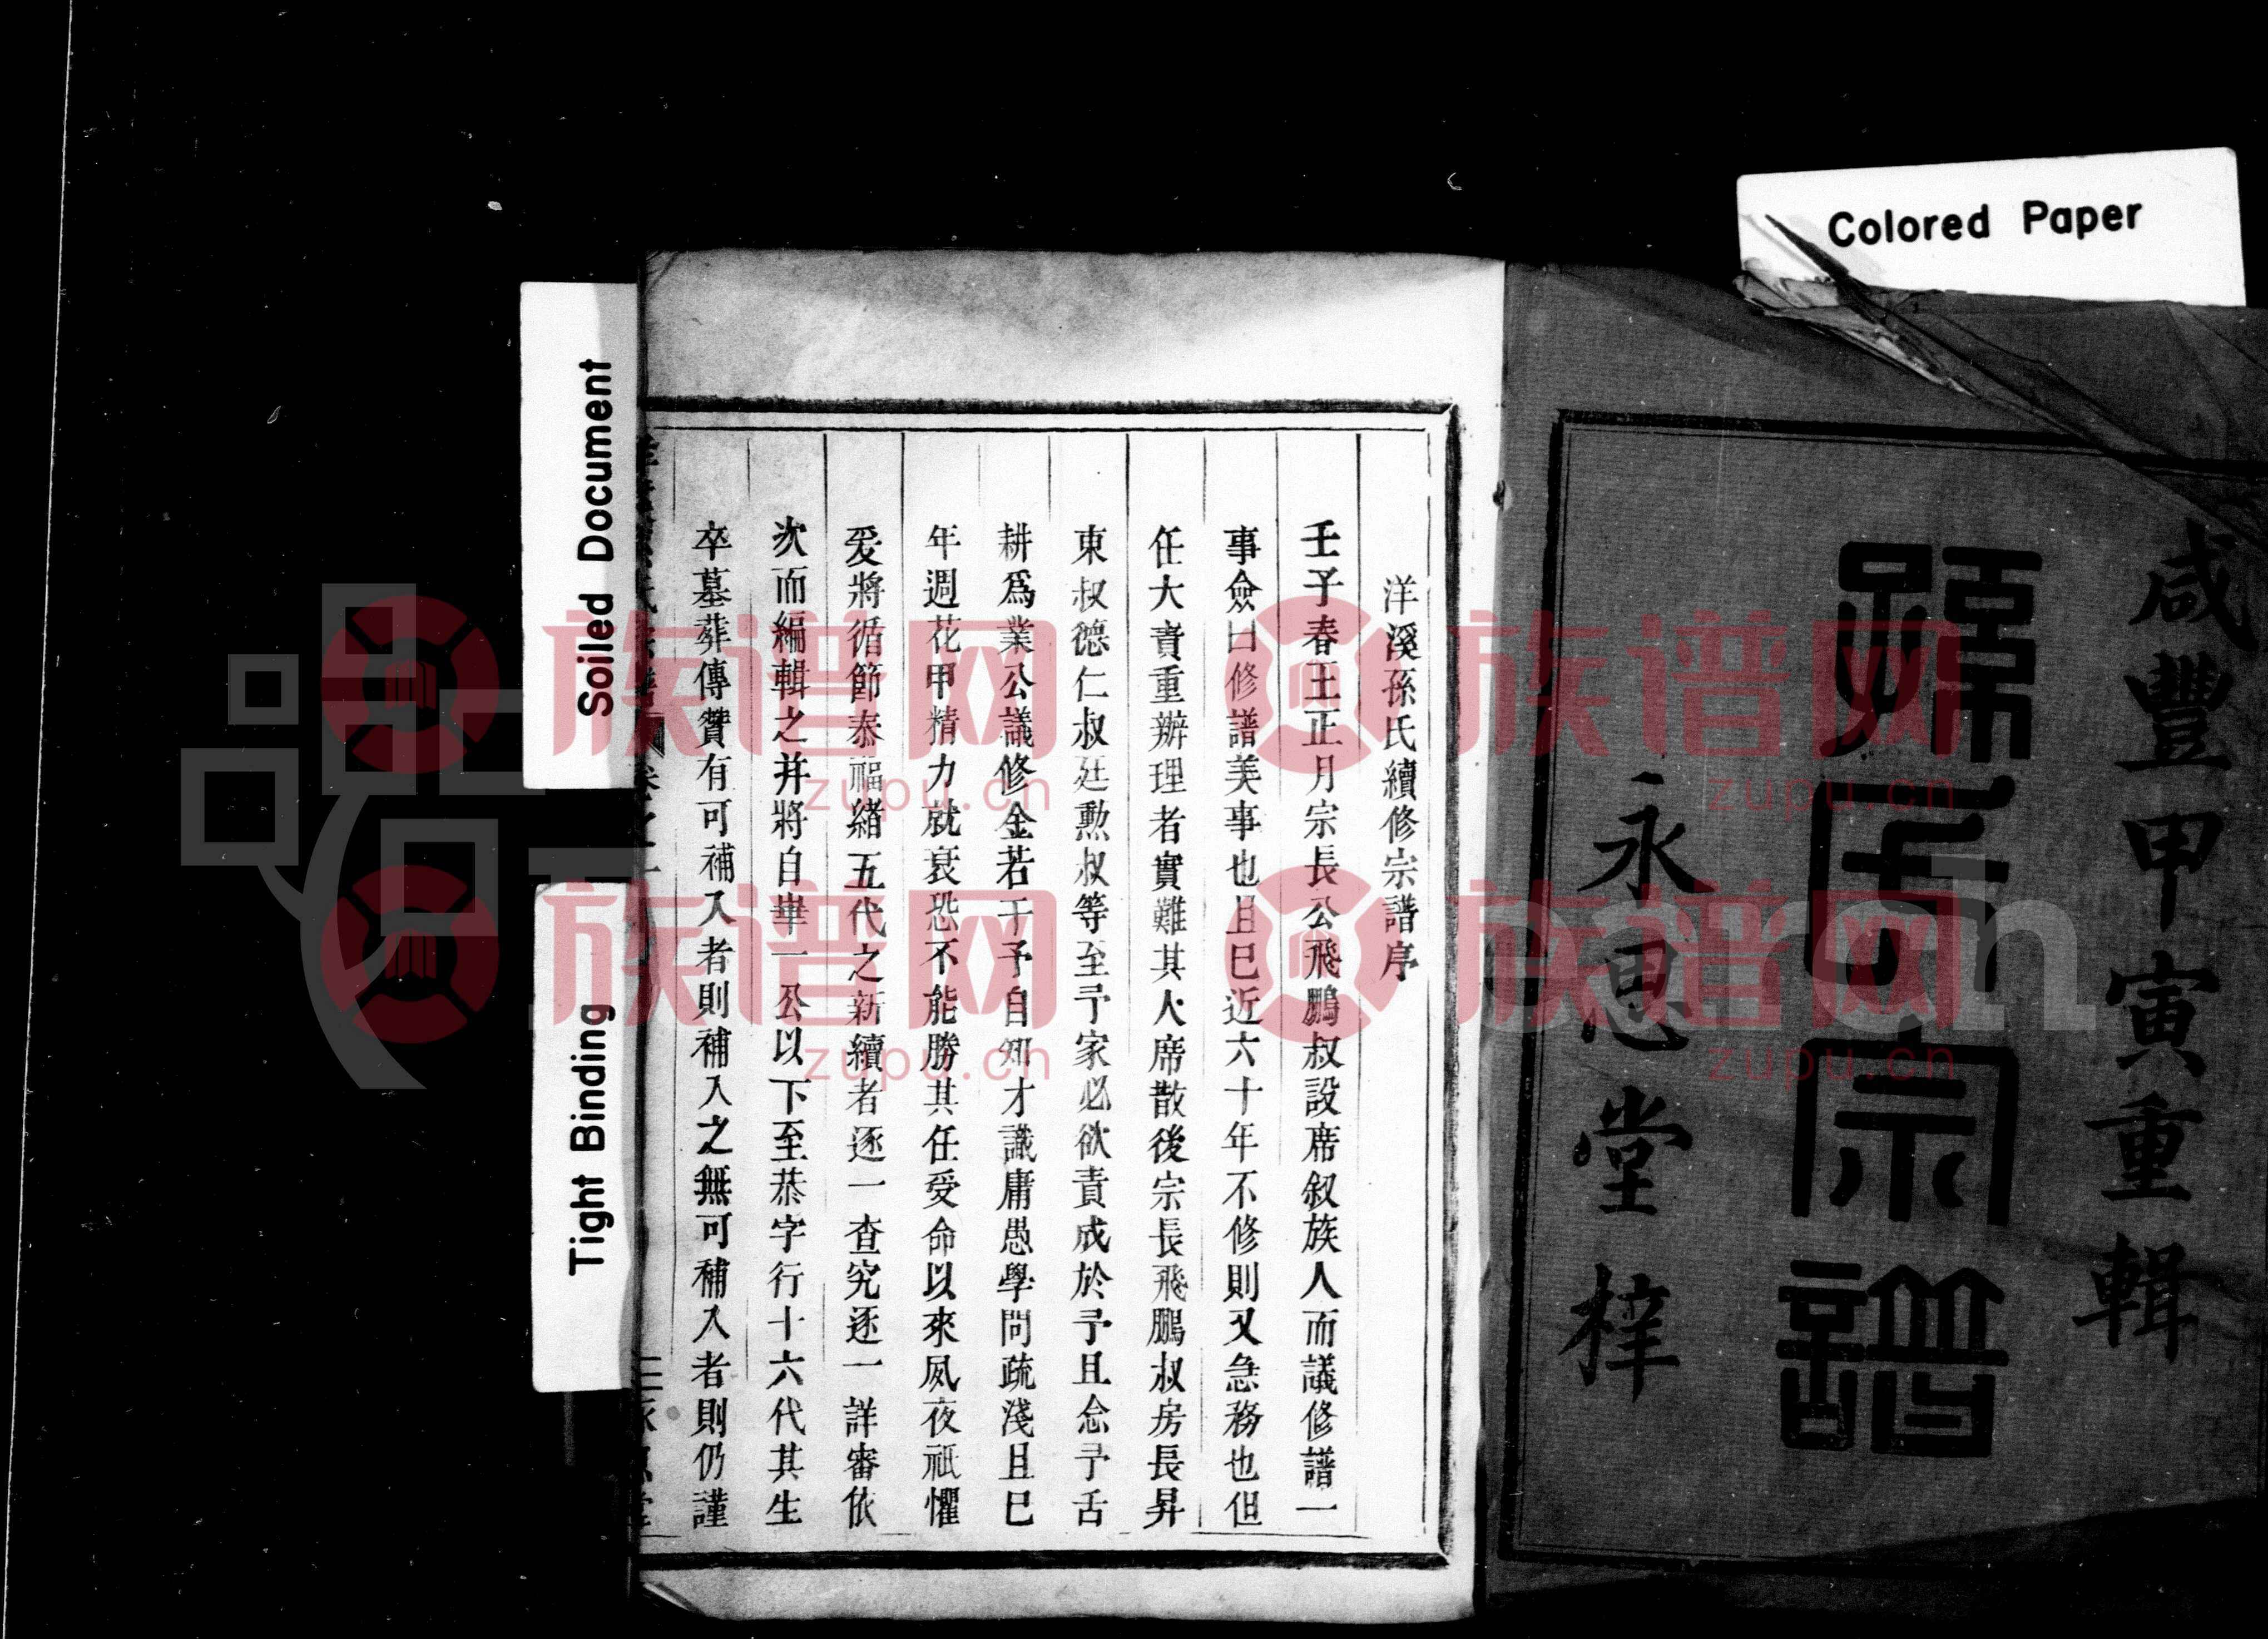 Colored Paper
咸豐甲寅重輯
孫氏宗譜
永思堂梓
洋溪孫氏續修宗譜序
壬子春王正月宗長公飛鵬叔設席叙族人而議修譜一
事僉曰修譜美事也且已近六十年不修則又急務也但
任大責重辦理者實難其人席散後宗長飛鵬叔房長昇
東叔德仁叔廷勲叔等至予家必欲責成於予且念予舌
耕爲業公議修金若干予自知才識庸愚學問疏淺且已
年週花甲精力就衰恐不能勝其任受命以來夙夜祇懼
爰將循節泰福緒五代之新續者逐一查究逐一詳審依
次而編輯之并將自華一公以下至恭字行十六代其生
卒墓葬傳贊有可補入者則補入之無可補入者則仍謹
Soiled Document
Tight Binding
族谱网
zupu.cn
族谱网
zupu.cn
族谱网
zupu.cn
族谱网
zupu.cn